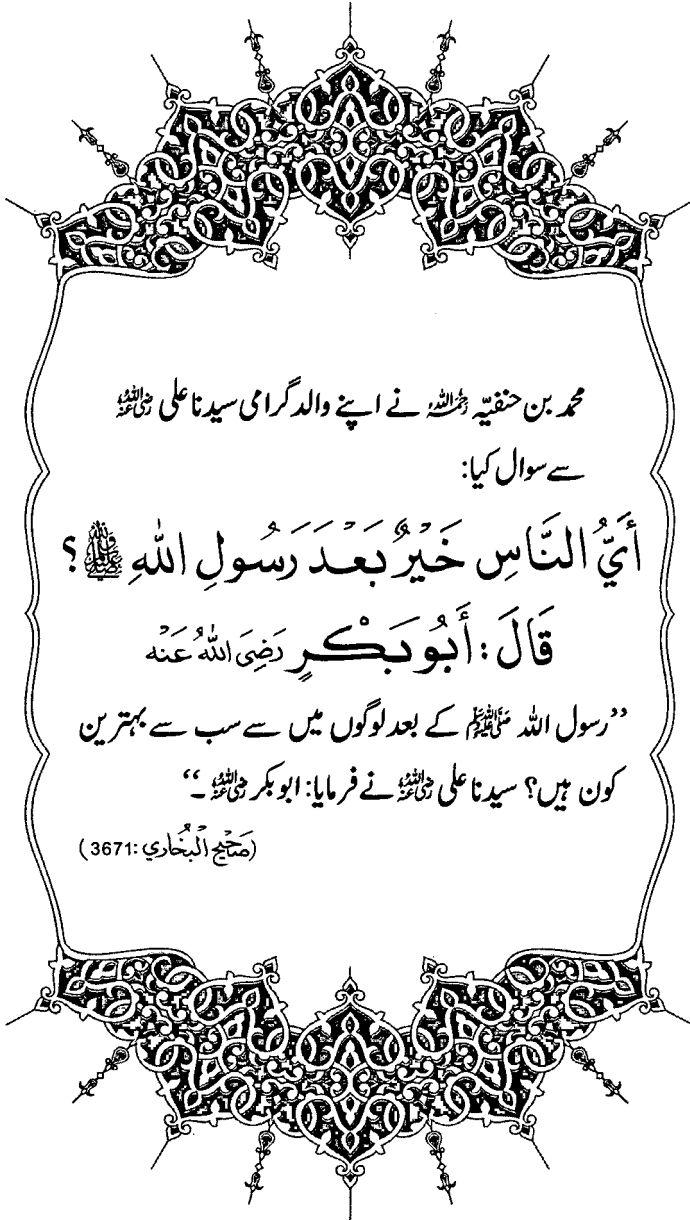 محمد بن حنفیّہ رحمہ اللہ نے اپنے والد گرامی سیدنا علی رضی اللہ عنہ
سے سوال کیا:
أَيُّ النَّاسِ خَيْرٌ بَعْدَ رَسُولِ اللّٰهِ ﷺ؟
قَالَ: أَبُو بَكْرٍ رَضِيَ اللّٰهُ عَنْهُ
”رسول اللہ ﷺ کے بعد لوگوں میں سے سب سے بہترین
کون ہیں؟ سیدنا علی رضی اللہ عنہ نے فرمایا: ابوبکر رضی اللہ عنہ۔“
(صَحِيْح الْبُخَاري: 3671)